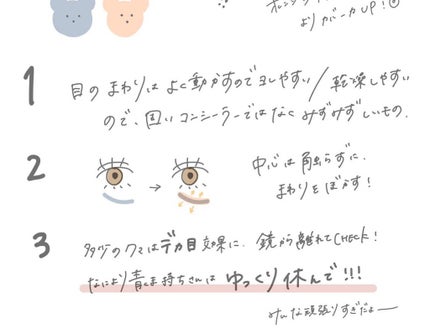 よりカバー力UP!
1
目のまわりはよく動かすのでヨレやすい/乾燥しやすい
ので、固いコンシーラーではなくみずみずしいもの。
2
中心は触らずに、
まわりをぼかす!
3
多少のクマはデカ目効果に、鏡から離れてCHECK!
なにより青くま持ちさんはゆっくり休んで!!!
みんな頑張りすぎだよー